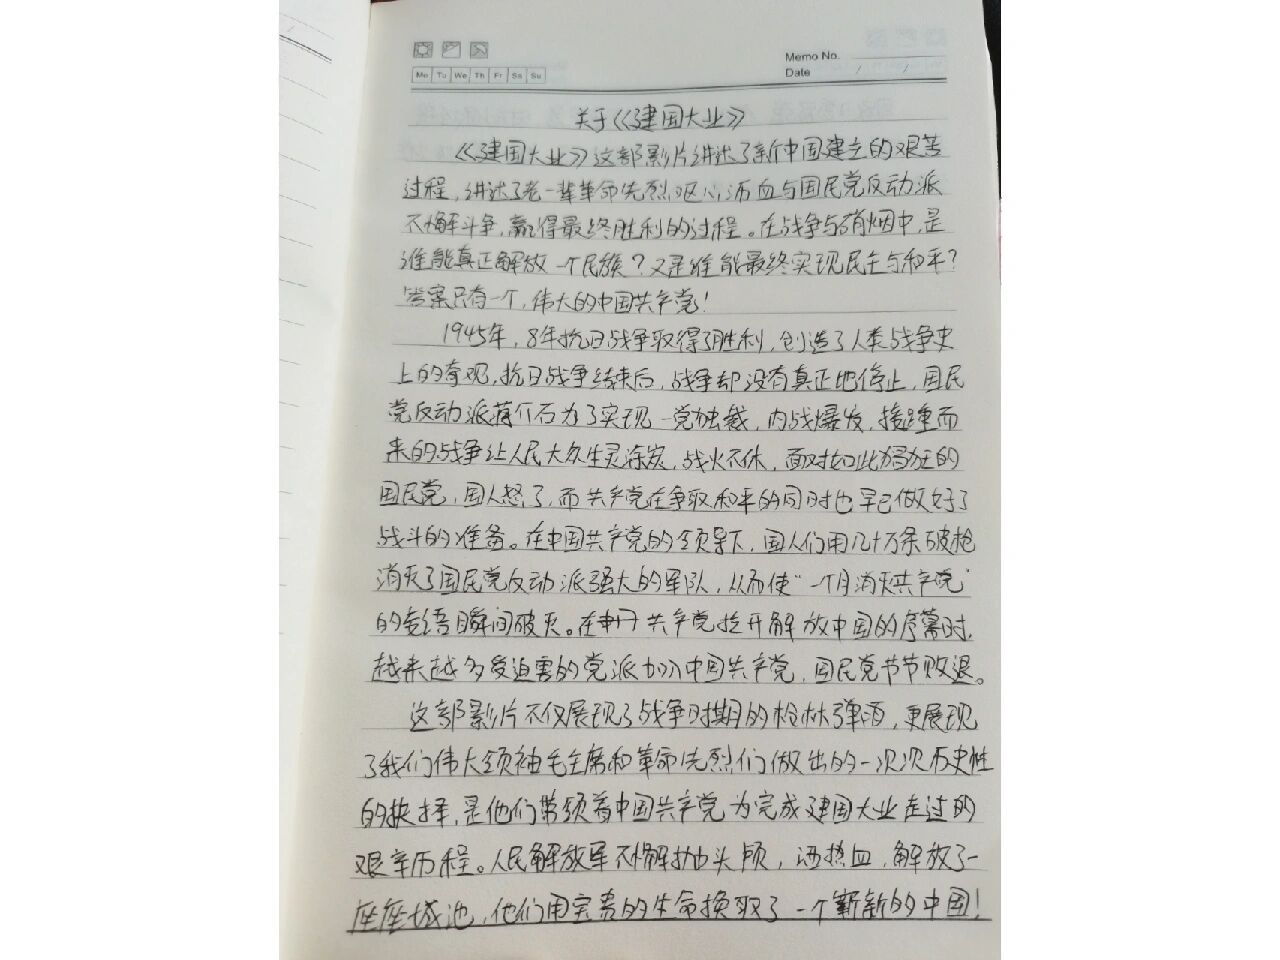 Memo No.
Mo Tu We Th Fr Sa Su
Date / /
关于《建国大业》
《建国大业》这部影片讲述了新中国建立的艰苦
过程，讲述了老一辈革命先烈呕心沥血与国民党反动派
不懈斗争，赢得最终胜利的过程。在战争与硝烟中，是
谁能真正解放一个民族？又是谁能最终实现民主与和平？
答案只有一个，伟大的中国共产党！
1945年，8年抗日战争取得了胜利，创造了人类战争史
上的奇观，抗日战争结束后，战争却没有真正地停止，国民
党反动派蒋介石为了实现一党独裁，内战爆发，接踵而
来的战争让人民大众生灵涂炭，战火不休，面对如此猖狂的
国民党，国人怒了，而共产党在争取和平的同时也早已做好了
战斗的准备。在中国共产党的领导下，国人们用几十万条破枪
消灭了国民党反动派强大的军队，从而使“一个月消灭共产党”
的言语瞬间破灭。在共产党拉开解放中国的序幕时，
越来越多受迫害的党派加入中国共产党，国民党节节败退。
这部影片不仅展现了战争时期的枪林弹雨，更展现
了我们伟大领袖毛主席和革命先烈们做出的一次次历史性
的抉择，是他们带领着中国共产党为完成建国大业走过的
艰辛历程。人民解放军不懈抛头颅，洒热血，解放了一
座座城池，他们用宝贵的生命换取了一个崭新的中国！